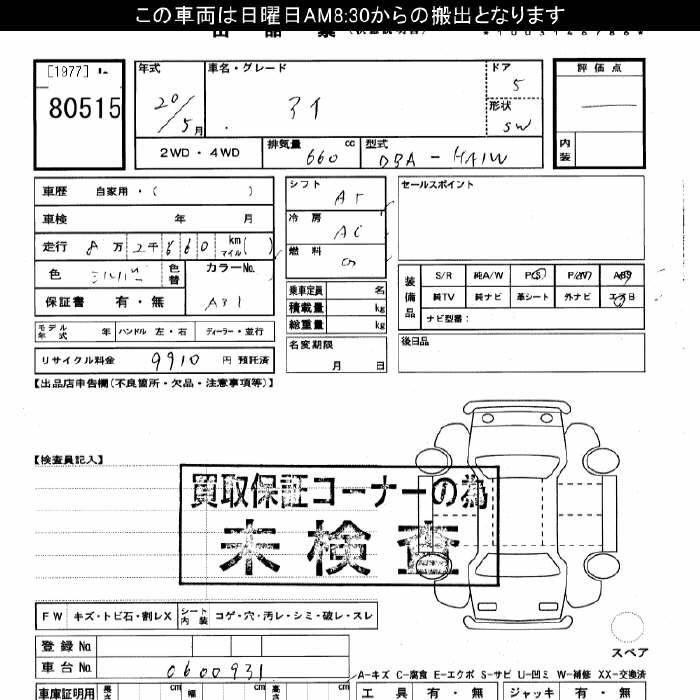 この車両は日曜日AM8:30からの搬出となります
[1977]
80515
年式
20/5月
車名・グレード
アイ
ドア
5
形状
SW
評価点
内装
2WD・4WD
排気量
660
cc
型式
DBA - HA1W
車歴 自家用・( )
車検 年 月
走行 8万2千660 km マイル( )
色 シルバー 色替
カラーNo. A31
保証書 有・無
モデル年式 年 ハンドル 左・右 ディーラー・並行
リサイクル料金 9910 円 預託済
シフト AT
冷房 AC
燃料
乗車定員 名
積載量 kg
総重量 kg
名変期限
月 日
セールスポイント
装備品
S/R 純A/W P/S P/W ABS
純TV 純ナビ 革シート 外ナビ エアB
ナビ型番:
後日品
【出品店申告欄(不良箇所・欠品・注意事項等)】
【検査員記入】
買取保証コーナーの為
未検査
FW キズ・トビ石・割レX シート内装 コゲ・穴・汚レ・シミ・破レ・スレ
登録No.
車台No. 0600931
スペア
A-キズ C-腐食 E-エクボ S-サビ U-凹ミ W-補修 XX-交換済
車庫証明用 長さ cm 幅 cm 高さ cm
工具 有・無 ジャッキ 有・無